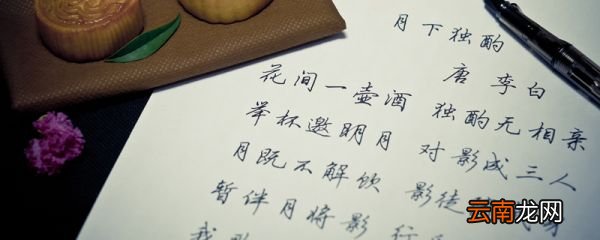 月下独酌
唐 李白
花间一壶酒 独酌无相亲
举杯邀明月 对影成三人
月既不解饮 影徒
暂伴月将影 行
我
云南龙网